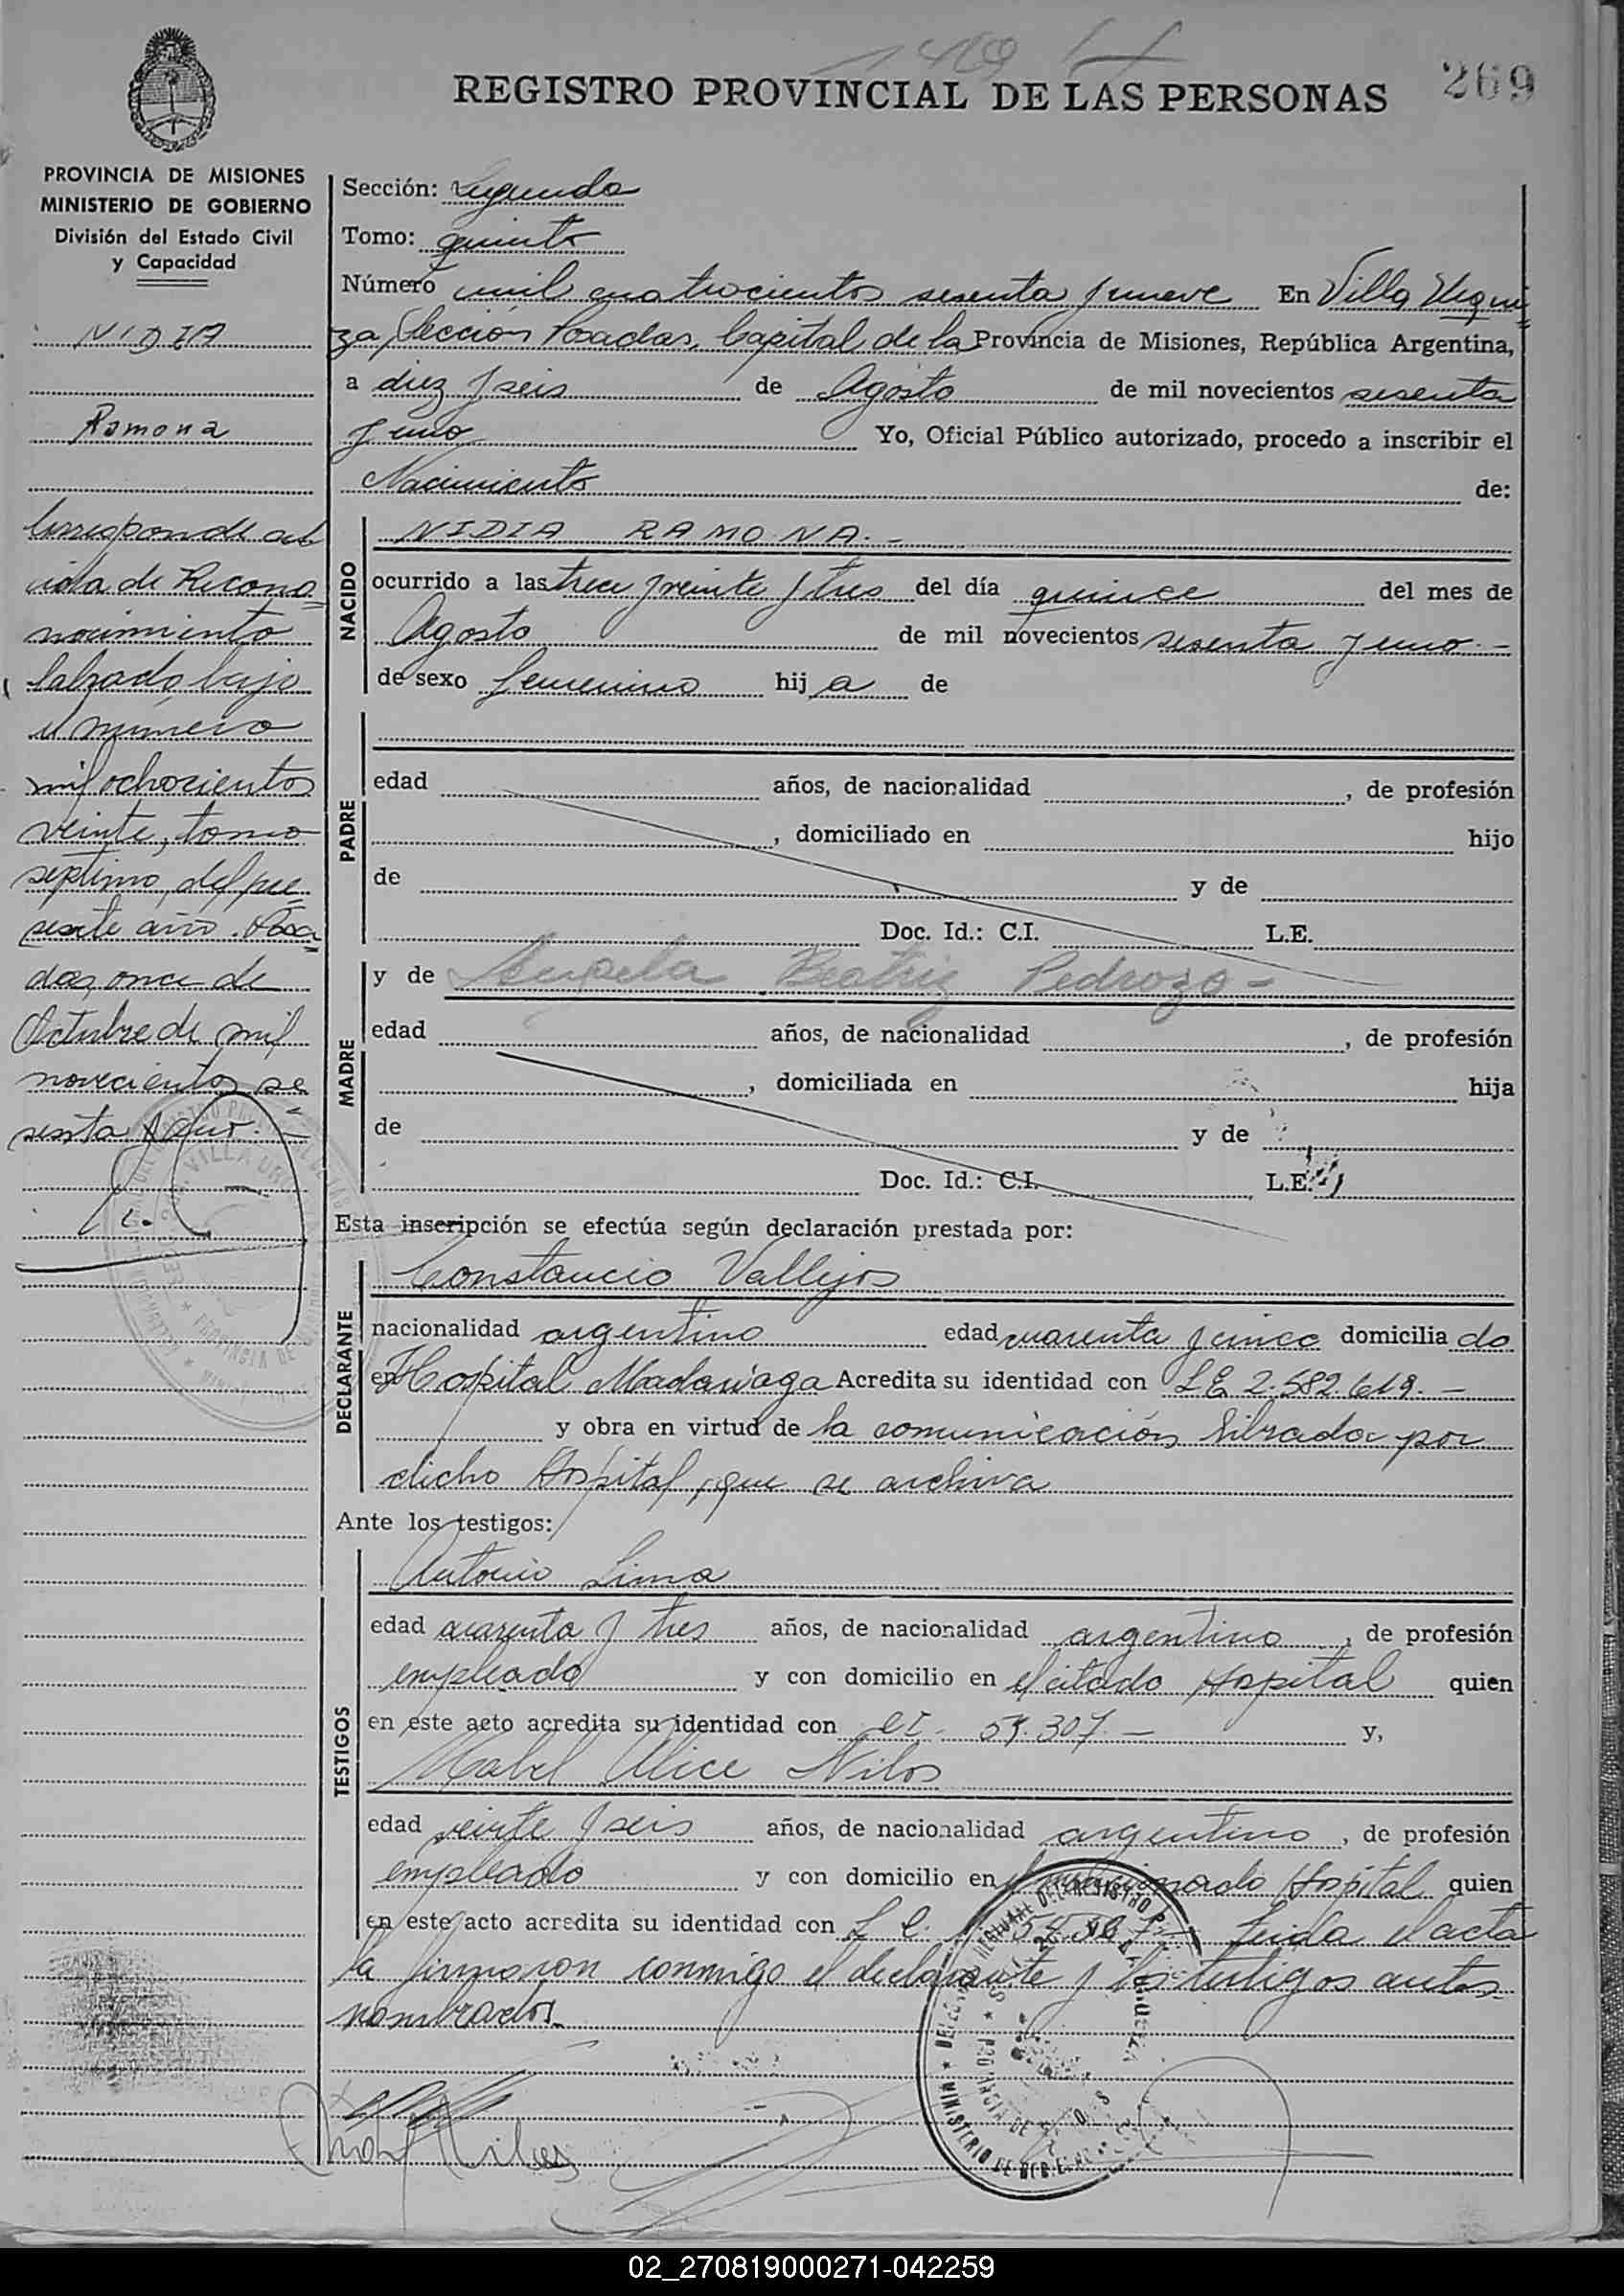 1469
REGISTRO PROVINCIAL DE LAS PERSONAS
269
PROVINCIA DE MISIONES
MINISTERIO DE GOBIERNO
División del Estado Civil
y Capacidad
NIDIA
Ramona
Corresponde al
acta de Recono
nocimiento
labrado, bajo
el número
mil ochocientos
veinte, tomo
septimo, del pre
sente año. Posa
das, once de
Octubre de mil
novecientos se
senta y uno.
Sección: Segunda
Tomo: quinto
Número mil cuatrocientos sesenta y nueve En Villa Urqui
za, Sección Posadas, Capital de la Provincia de Misiones, República Argentina,
a diez y seis de Agosto de mil novecientos sesenta
y uno Yo, Oficial Público autorizado, procedo a inscribir el
Nacimiento de:
NACIDO
NIDIA RAMONA.-
ocurrido a las trece y veinte y tres del día quince del mes de
Agosto de mil novecientos sesenta y uno.-
de sexo femenino hija de
PADRE
edad años, de nacionalidad , de profesión
, domiciliado en hijo
de y de
Doc. Id.: C.I. L.E.
MADRE
y de Angela Beatriz Pedrozo-
edad años, de nacionalidad , de profesión
, domiciliada en hija
de y de
Doc. Id.: C.I. L.E.
Esta inscripción se efectúa según declaración prestada por:
DECLARANTE
Constancio Vallejos
nacionalidad argentino edad cuarenta y cinco domiciliado
en Hospital Madariaga Acredita su identidad con L E 2.582.619.-
y obra en virtud de la comunicación librada por
dicho Hospital, que se archiva
Ante los testigos:
TESTIGOS
Antonio Lima
edad cuarenta y tres años, de nacionalidad argentino, de profesión
empleado y con domicilio en el citado Hospital quien
en este acto acredita su identidad con CI. 54.307.- y,
Mabel Alice Nilos
edad veinte y seis años, de nacionalidad argentino, de profesión
empleado y con domicilio en el mencionado Hospital quien
en este acto acredita su identidad con Leida el acta
la firmaron conmigo el declarante y los testigos antes
nombrados.
02_270819000271-042259